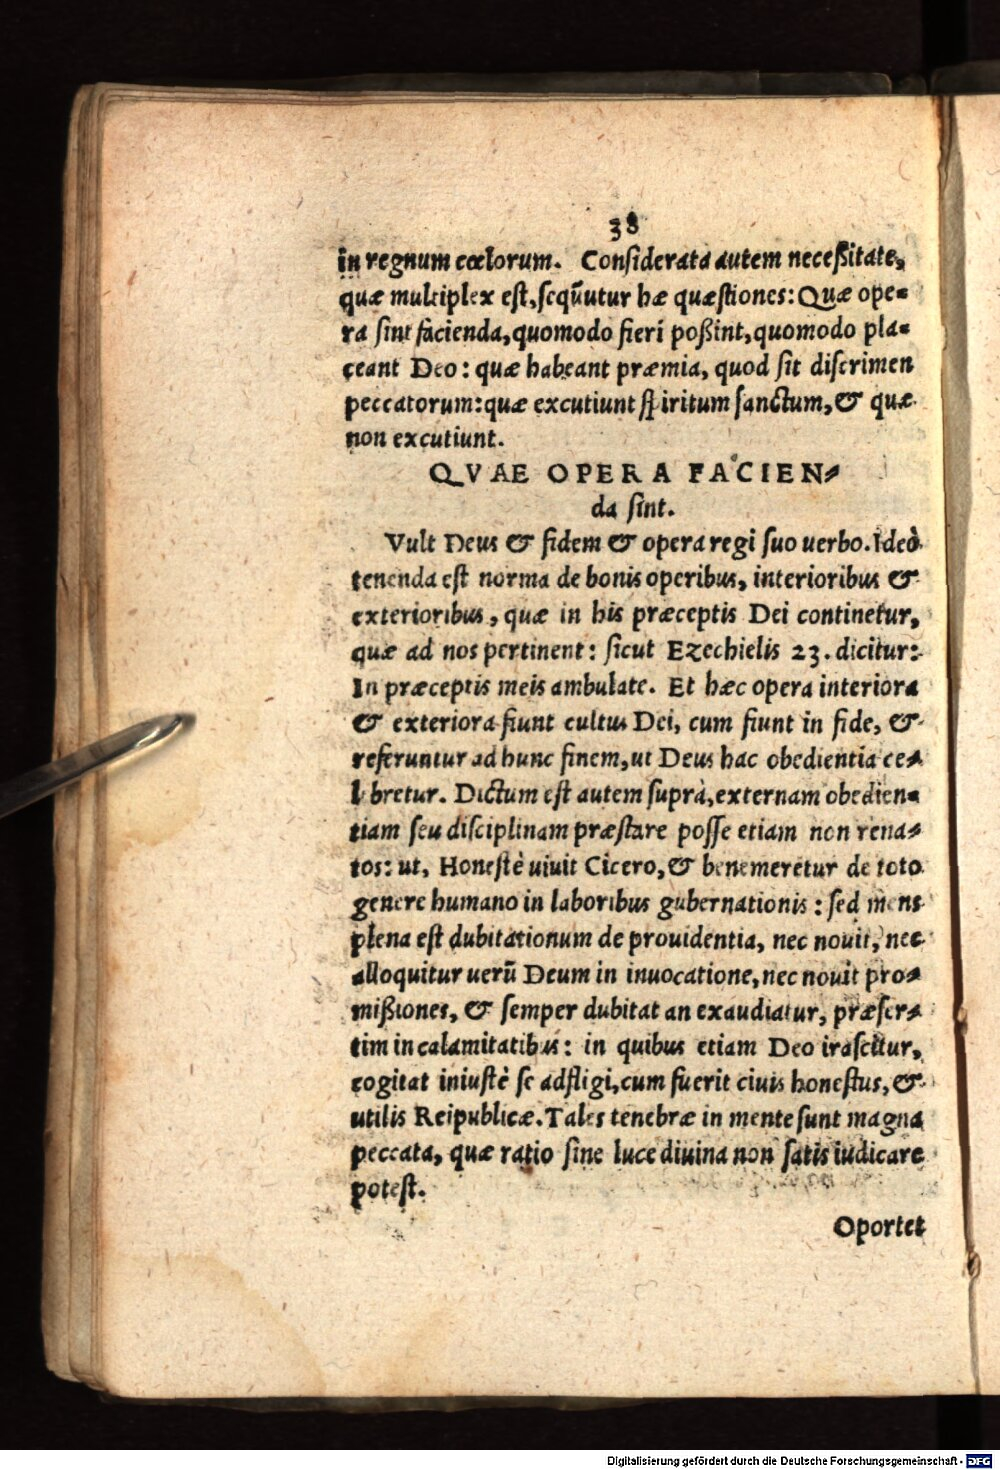 38
in regnum cœlorum. Considerata autem neceßitate,
quæ multiplex est, sequũutur hæ quæstiones: Quæ ope=
ra sint facienda, quomodo fieri poßint, quomodo pla=
ceant Deo: quæ habeant præmia, quod sit discrimen
peccatorum: quæ excutiunt spiritum sanctum, & quæ
non excutiunt.
QVAE OPERA FACIEN=
da sint.
Vult Deus & fidem & opera regi suo uerbo. Ideò
tenenda est norma de bonis operibus, interioribus &
exterioribus, quæ in his præceptis Dei continetur,
quæ ad nos pertinent: sicut Ezechielis 23. dicitur:
In præceptis meis ambulate. Et hæc opera interiora
& exteriora fiunt cultus Dei, cum fiunt in fide, &
referuntur ad hunc finem, ut Deus hac obedientia ce=
l bretur. Dictum est autem suprà, externam obedien=
tiam seu disciplinam præstare posse etiam non rena=
tos: ut, Honestè uiuit Cicero, & benemeretur de toto
genere humano in laboribus gubernationis: sed mens
plena est dubitationum de prouidentia, nec nouit, nec
alloquitur uerũ Deum in inuocatione, nec nouit pro=
mißiones, & semper dubitat an exaudiatur, præser=
tim in calamitatibus: in quibus etiam Deo irascitur,
cogitat iniustè se adfligi, cum fuerit ciuis honestus, &
utilis Reipublicæ. Tales tenebræ in mente sunt magna
peccata, quæ ratio sine luce diuina non satis iudicare
potest.
Oportet
Digitalisierung gefördert durch die Deutsche Forschungsgemeinschaft - DFG